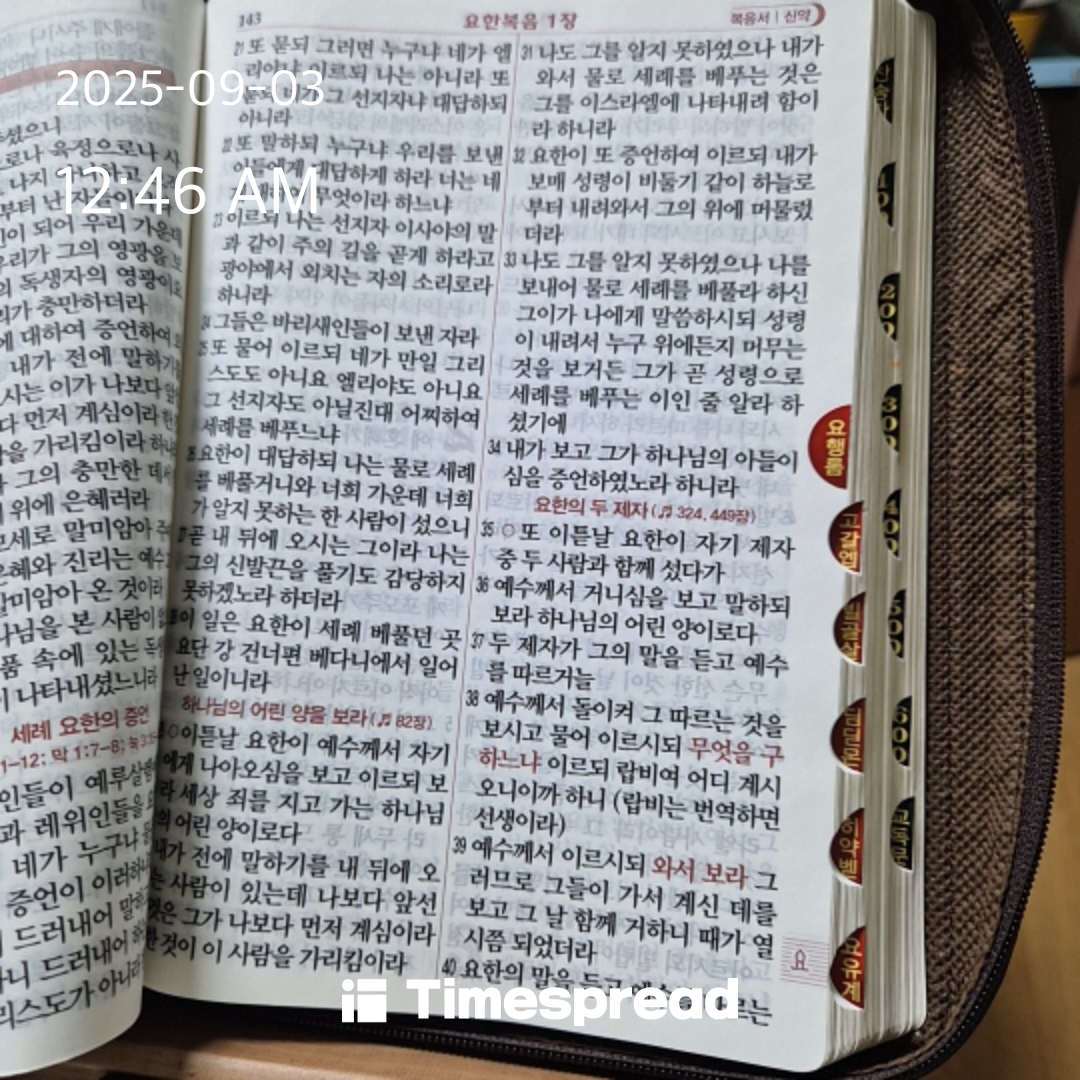 2025-09-03
12:46 AM
143
요한복음 1장
복음서 | 신약
셨으나
나 육정으로나 사
나지
부터 난
이 되어 우리 가운데
우리가 그의 영광을 보
의 독생자의 영광이요
리가 충만하더라
에 대하여 증언하여
내가 전에 말하기를
시는 이가 나보다
다 먼저 계심이라 한
을 가리킴이라 하니라
그의 충만한 데서
위에 은혜러라
모세로 말미암아 주
은혜와 진리는 예수
말미암아 온 것이라
나님을 본 사람이
품 속에 있는 독생
이 나타내셨느니라
세례 요한의 증언
1-12; 막 1:7-8; 눅
인들이 예루살렘
과 레위인들을
네가 누구냐
증언이 이러하니
드러내어 말하
니 드러내어
리스도가 아니라
21 또 묻되 그러면 누구냐 네가 엘
리야냐 이르되 나는 아니라 또
묻되 네가 그 선지자냐 대답하되
아니라
22 또 말하되 누구냐 우리를 보낸
이들에게 대답하게 하라 너는 네
무엇이라 하느냐
23 이르되 나는 선지자 이사야의 말
과 같이 주의 길을 곧게 하라고
광야에서 외치는 자의 소리로라
하니라
24 그들은 바리새인들이 보낸 자라
25 또 물어 이르되 네가 만일 그리
스도도 아니요 엘리야도 아니요
그 선지자도 아닐진대 어찌하여
세례를 베푸느냐
26 요한이 대답하되 나는 물로 세례
를 베풀거니와 너희 가운데 너희
가 알지 못하는 한 사람이 섰으니
27 곧 내 뒤에 오시는 그이라 나는
그의 신발끈을 풀기도 감당하지
못하겠노라 하더라
이 일은 요한이 세례 베풀던 곳
요단 강 건너편 베다니에서 일어
난 일이니라
하나님의 어린 양을 보라(♬ 82장)
○이튿날 요한이 예수께서 자기
에게 나아오심을 보고 이르되 보
라 세상 죄를 지고 가는 하나님
의 어린 양이로다
내가 전에 말하기를 내 뒤에 오
는 사람이 있는데 나보다 앞선
것은 그가 나보다 먼저 계심이라
한 것이 이 사람을 가리킴이라
31 나도 그를 알지 못하였으나 내가
와서 물로 세례를 베푸는 것은
그를 이스라엘에 나타내려 함이
라 하니라
32 요한이 또 증언하여 이르되 내가
보매 성령이 비둘기 같이 하늘로
부터 내려와서 그의 위에 머물렀
더라
33 나도 그를 알지 못하였으나 나를
보내어 물로 세례를 베풀라 하신
그이가 나에게 말씀하시되 성령
이 내려서 누구 위에든지 머무는
것을 보거든 그가 곧 성령으로
세례를 베푸는 이인 줄 알라 하
셨기에
34 내가 보고 그가 하나님의 아들이
심을 증언하였노라 하니라
요한의 두 제자(♬ 324, 449장)
35 ○ 또 이튿날 요한이 자기 제자
중 두 사람과 함께 섰다가
36 예수께서 거니심을 보고 말하되
보라 하나님의 어린 양이로다
37 두 제자가 그의 말을 듣고 예수
를 따르거늘
38 예수께서 돌이켜 그 따르는 것을
보시고 물어 이르시되 무엇을 구
하느냐 이르되 랍비여 어디 계시
오니이까 하니 (랍비는 번역하면
선생이라)
39 예수께서 이르시되 와서 보라 그
러므로 그들이 가서 계신 데를
보고 그 날 함께 거하니 때가 열
시쯤 되었더라
40 요한의 말을 듣고
는
요
요행롬
고갈엡
빌골살
딤딛몬
히약벧
요유계
101
200
300
400
500
600
교독문
Timespread